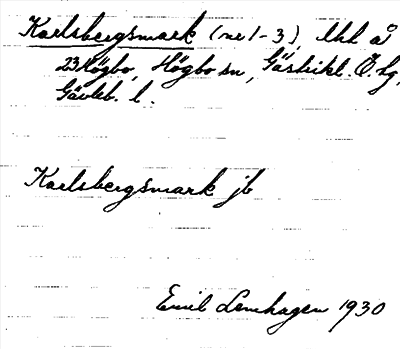 Karlsbergsmark (nr 1-3), lht å
23 Högbo, Högbo sn, Gästrikl. Ö. tg,
Gävleb. l.
Karlsbergsmark jb
Emil Lenhagen 1930